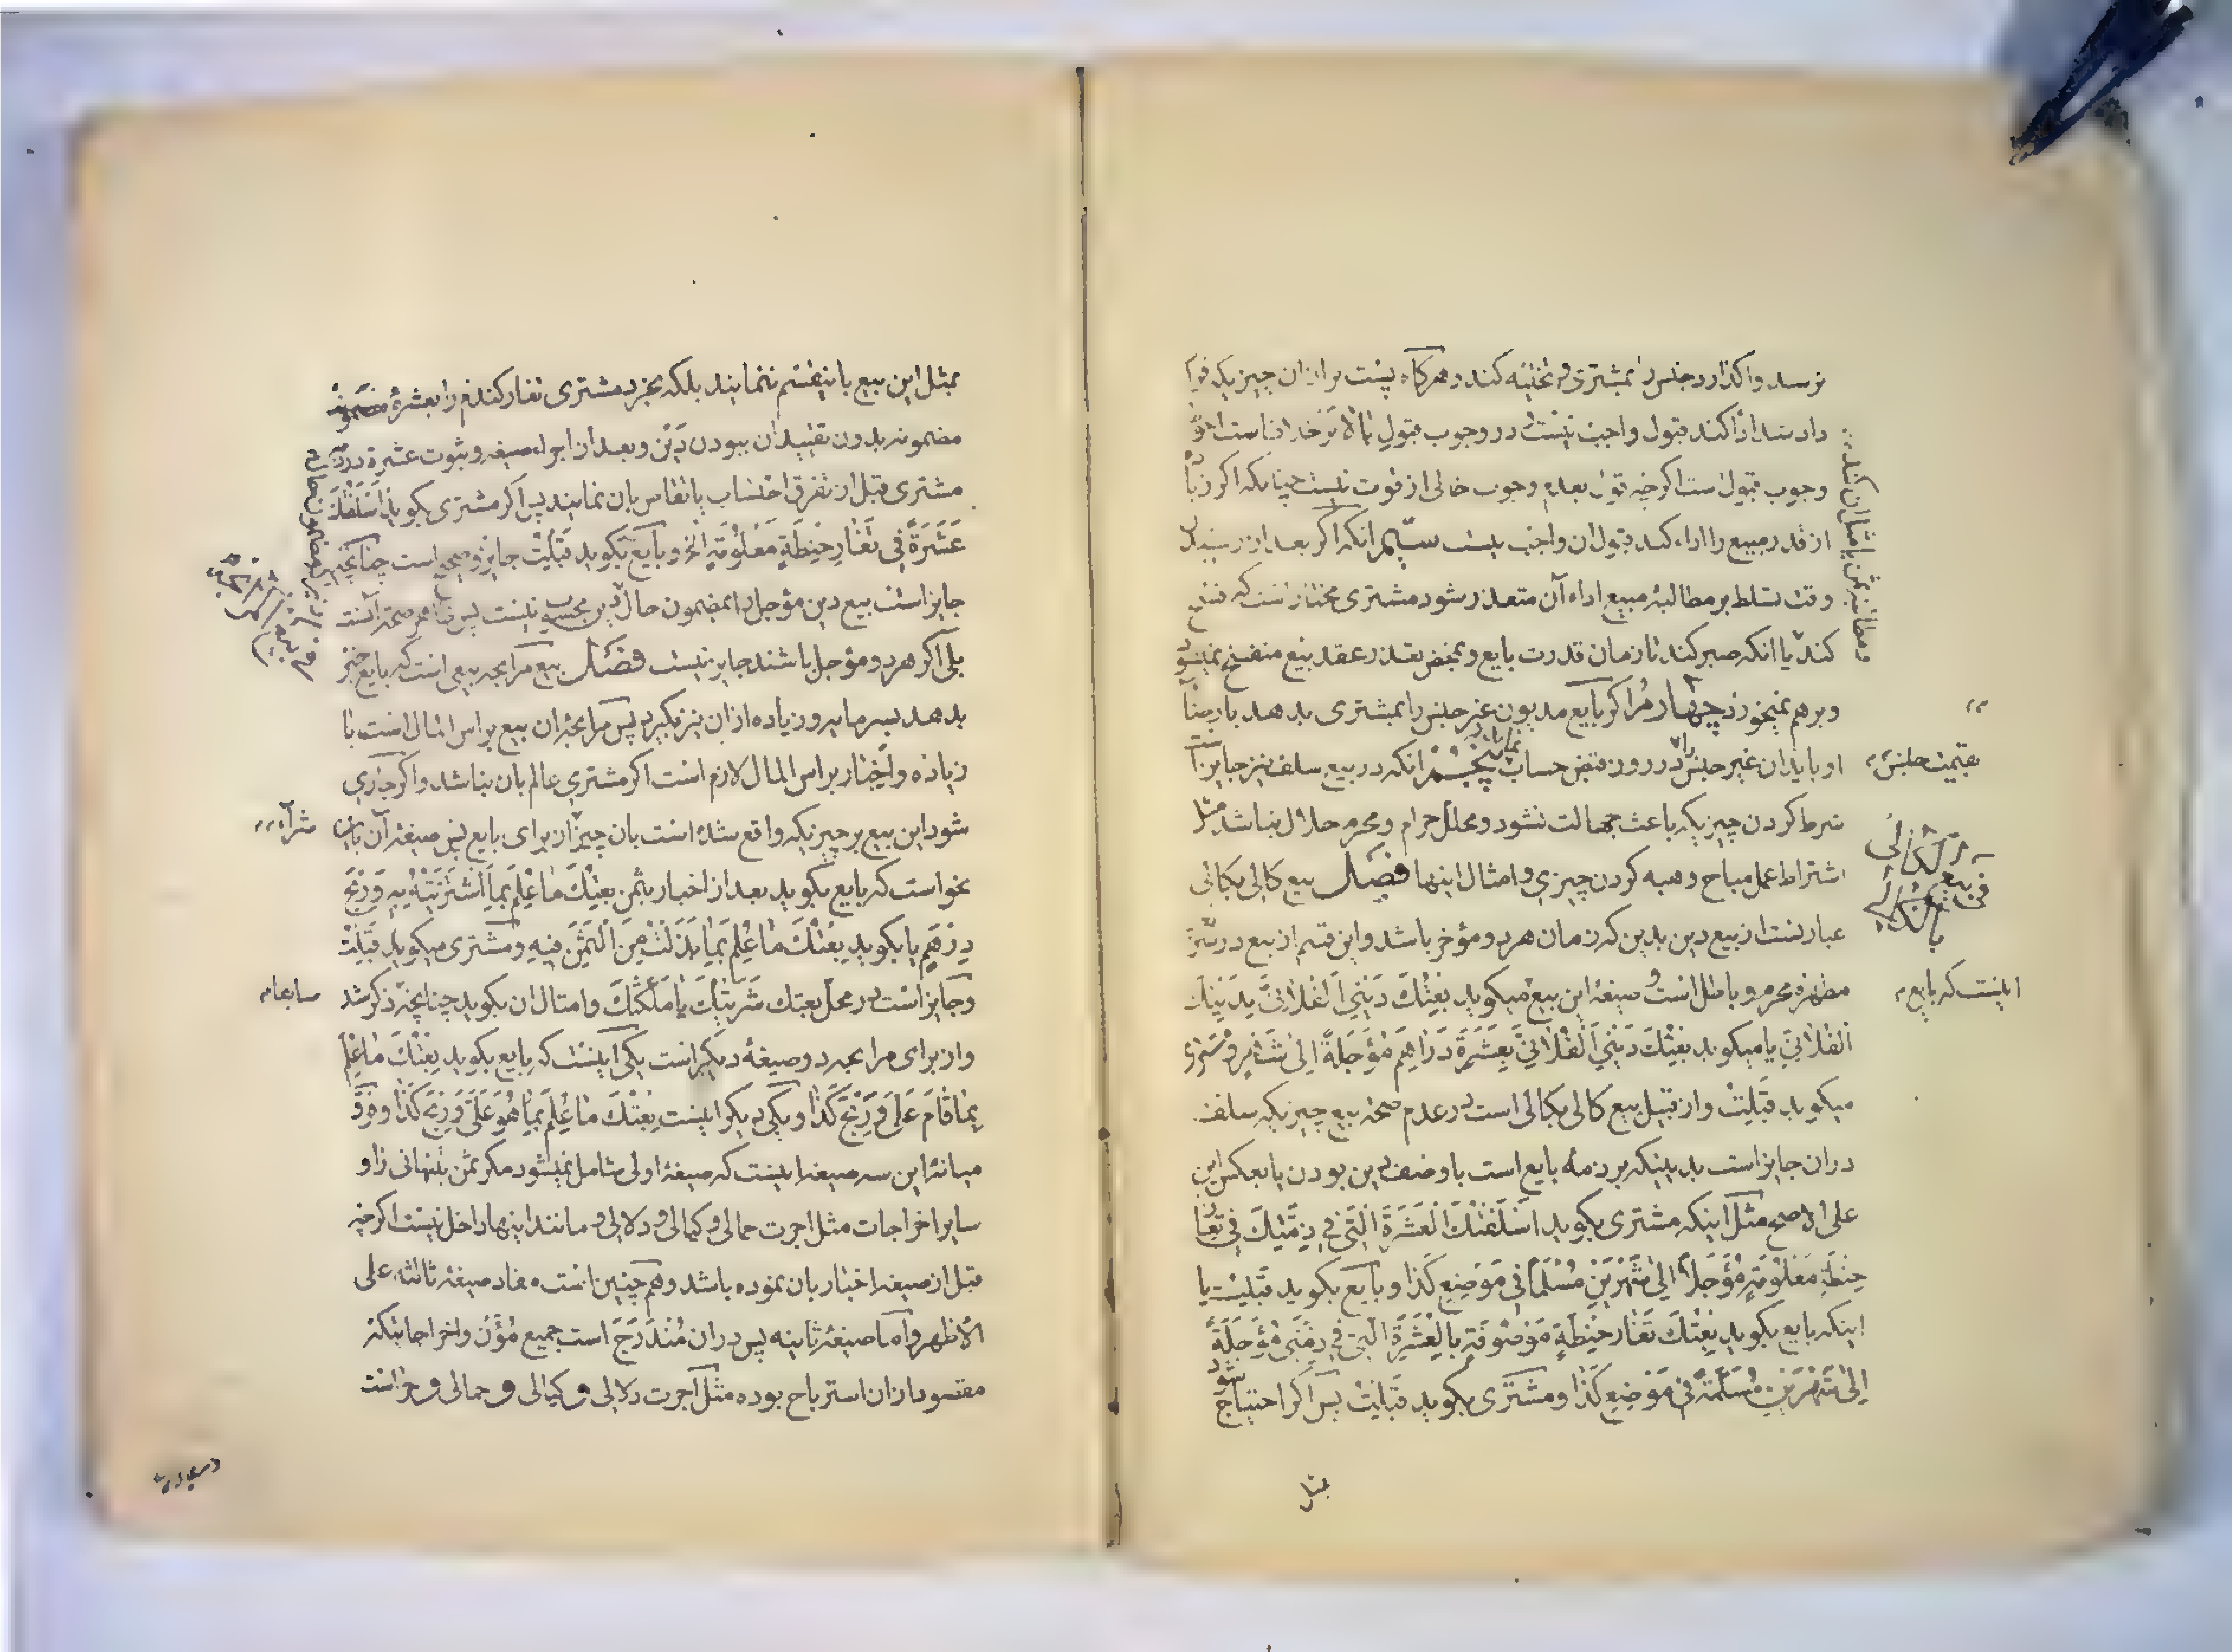 نرسد واگذارد جنس را بمشتری و تخلیه کند و هرگاه پست‌تر از آن چیزیکه قرار
داد شد ادا کند قبول واجب نیست و در وجوب قبول بالاتر خلاف است احوط
وجوب قبول است اگرچه قول بعدم وجوب خالی از قوت نیست چنانکه اگر زیاده
از قدر مبیع را اداء کند قبول ان واجب نیست سیّم انکه اگر بعد از رسیدن
وقت تسلط بر مطالبۀ مبیع اداء آن متعذر شود مشتری مختار است که فسخ
کند یا انکه صبر کند تا زمان قدرت بایع و بمحض تعذر عقد بیع منفسخ نمیشود
و برهم نمیخورد چهارم اگر بایع مدیون غیر جنس را بمشتری بدهد با رضای
او باید ان غیر جنس را در روز قبض حساب نمایند پنجم انکه در بیع سلف نیز جایز است
شرط کردن چیزیکه باعث جهالت نشود و محلل حرام و محرم حلال نباشد مثل
اشتراط عمل مباح و هبه کردن چیزی و امثال اینها فصل بیع کالی بکالی
عبارتست از بیع دین بدین که زمان هردو مؤخر باشد و این قسم از بیع در شرع
مطهره محرم و باطل است و صیغۀ این بیع میگوید بِعْتُكَ دَيْنِيَ الْفُلانِيَّ بِدَيْنِكَ
الْفُلانِيِّ یا میگوید بِعْتُكَ دَيْنِيَ الْفُلانِيَّ بِعَشَرَةِ دَراهِمَ مُؤَجَّلَةً اِلى شَهْرٍ و مشتری
میگوید قَبِلْتُ و از قبیل بیع کالی بکالی است در عدم صحة بیع چیزیکه سلف
دران جایز است بدینیکه بر ذمه بایع است با وصف دین بودن یا بعکس این
علی الاصح مثل اینکه مشتری بگوید اَسْلَفْتُكَ الْعَشَرَةَ الَّتي في ذِمَّتِكَ في تَغارِ
حِنْطَةٍ مَعْلُومَةٍ مُؤَجَّلاً اِلى شَهْرَيْنِ مُسَلَّماً في مَوْضِعِ كَذا و بایع بگوید قَبِلْتُ یا
اینکه بایع بگوید بِعْتُكَ تَغارَ حِنْطَةٍ مَوْصُوفَةٍ بِالْعَشَرَةِ الَّتي في ذِمَّتي مُؤَجَّلَةً
اِلى شَهْرَيْنِ مُسَلَّمَةً في مَوْضِعِ كَذا و مشتری بگوید قَبِلْتُ پس اگر احتیاج شود
بقیمت جنس
في بیع الکالي بالکالي
اینست که بایع
بمثل
بمثل این بیع باینقسم ننمایند بلکه بخرد مشتری تغار گندم را بعشرۀ
مضمونه بدون تقیید ان ببودن دَیْن و بعد از اجراء صیغه و ثبوت عشرة در ذمۀ
مشتری قبل از تفرق احتساب یا تقاص بان نمایند پس اگر مشتری بگوید اَسْلَفْتُكَ
عَشَرَةً في تَغارِ حِنْطَةٍ مَعْلُومَةٍ الخ و بایع بگوید قَبِلْتُ جایز و صحیح است چنانچه
جایز است بیع دین مؤجل را بمضمون حال
بلی اگر هردو مؤجل باشند جایز نیست فصل بیع مرابحه بیعی است که بایع خبر
بدهد بسرمایه و زیاده از ان نیز بگیرد پس مرابحه ان بیع براس المال است با
زیاده و اِخبار براس المال لازم است اگر مشتری عالم بان نباشد و اگر جاری
شود این بیع بر چیزیکه واقع شده است بان چیز از برای بایع پس صیغۀ آن بان
نحو است که بایع بگوید بعد از اخبار بثمن بِعْتُكَ ما عُلِمَ بِمَا اشْتَرَيْتُهُ بِهِ وَ رِبْحِ
دِرْهَمٍ یا بگوید بِعْتُكَ ما عُلِمَ بِما بَذَلْتُ مِنَ الثَّمَنِ فيهِ و مشتری میگوید قَبِلْتُ
و جایز است در محل بعتك شَرَیْتُكَ یا مَلَّكْتُكَ و امثال ان بگوید چنانچه ذکر شد
و از برای مرابحه دو صیغۀ دیگر است یکی اینست که بایع بگوید بِعْتُكَ ما عُلِمَ
بِما قامَ عَلَيَّ وَ رِبْحِ كَذا و یکی دیگر اینست بِعْتُكَ ما عُلِمَ بِما هُوَ عَلَيَّ وَ رِبْحِ كَذا و فرق
میانۀ این سه صیغه اینست که صیغۀ اولی شامل نمیشود مگر ثمن بتنهائی را و
سایر اخراجات مثل اجرت حمالی و کیالی و دلالی و مانند اینها داخل نیست اگرچه
قبل از صیغه اخبار بان نموده باشد و همچنین است مفاد صیغۀ ثالثه علی
الاظهر و اما صیغۀ ثانیه پس دران مُنْدَرَج است جمیع مُؤَن و اخراجاتیکه
مقصود ازان استرباح بوده مثل اجرت دلالی و کیالی و حمالی و حراست
شرآء
سابقا